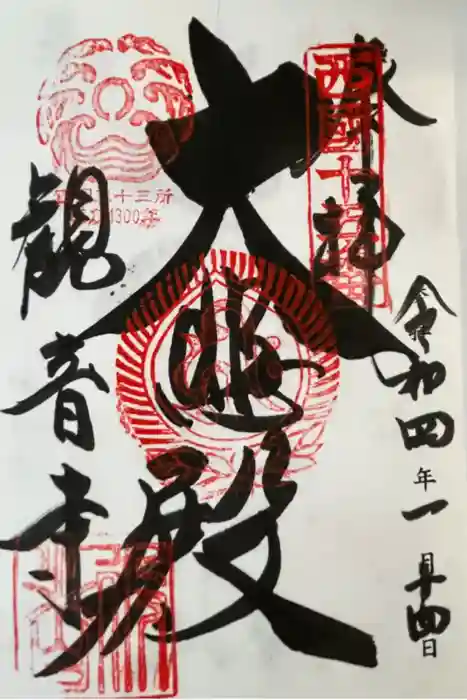 奉拝
西國十五番
令和四年一月十四日
大悲殿
西国三十三所
草創1300年
観音寺